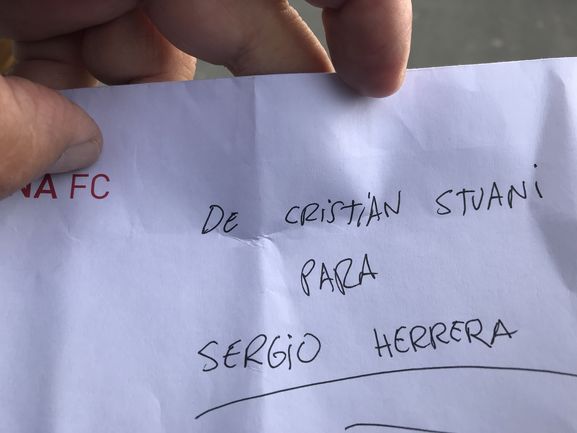 NA FC
DE CRISTIÁN STUANI
PARA
SERGIO HERRERA